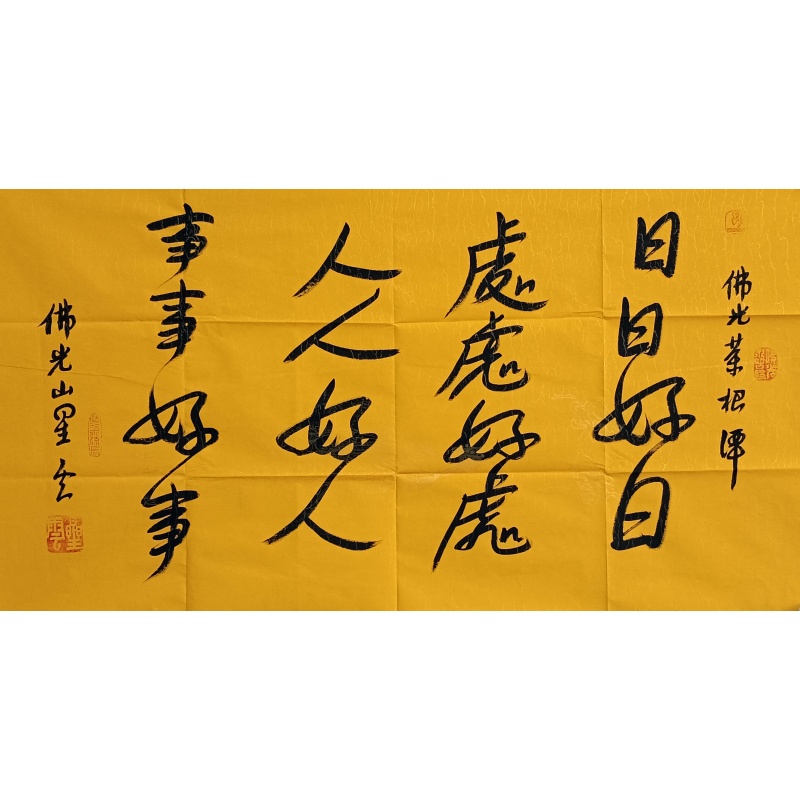 佛光菜根譚
日日好日
處處好處
人人好人
事事好事
佛光山星雲